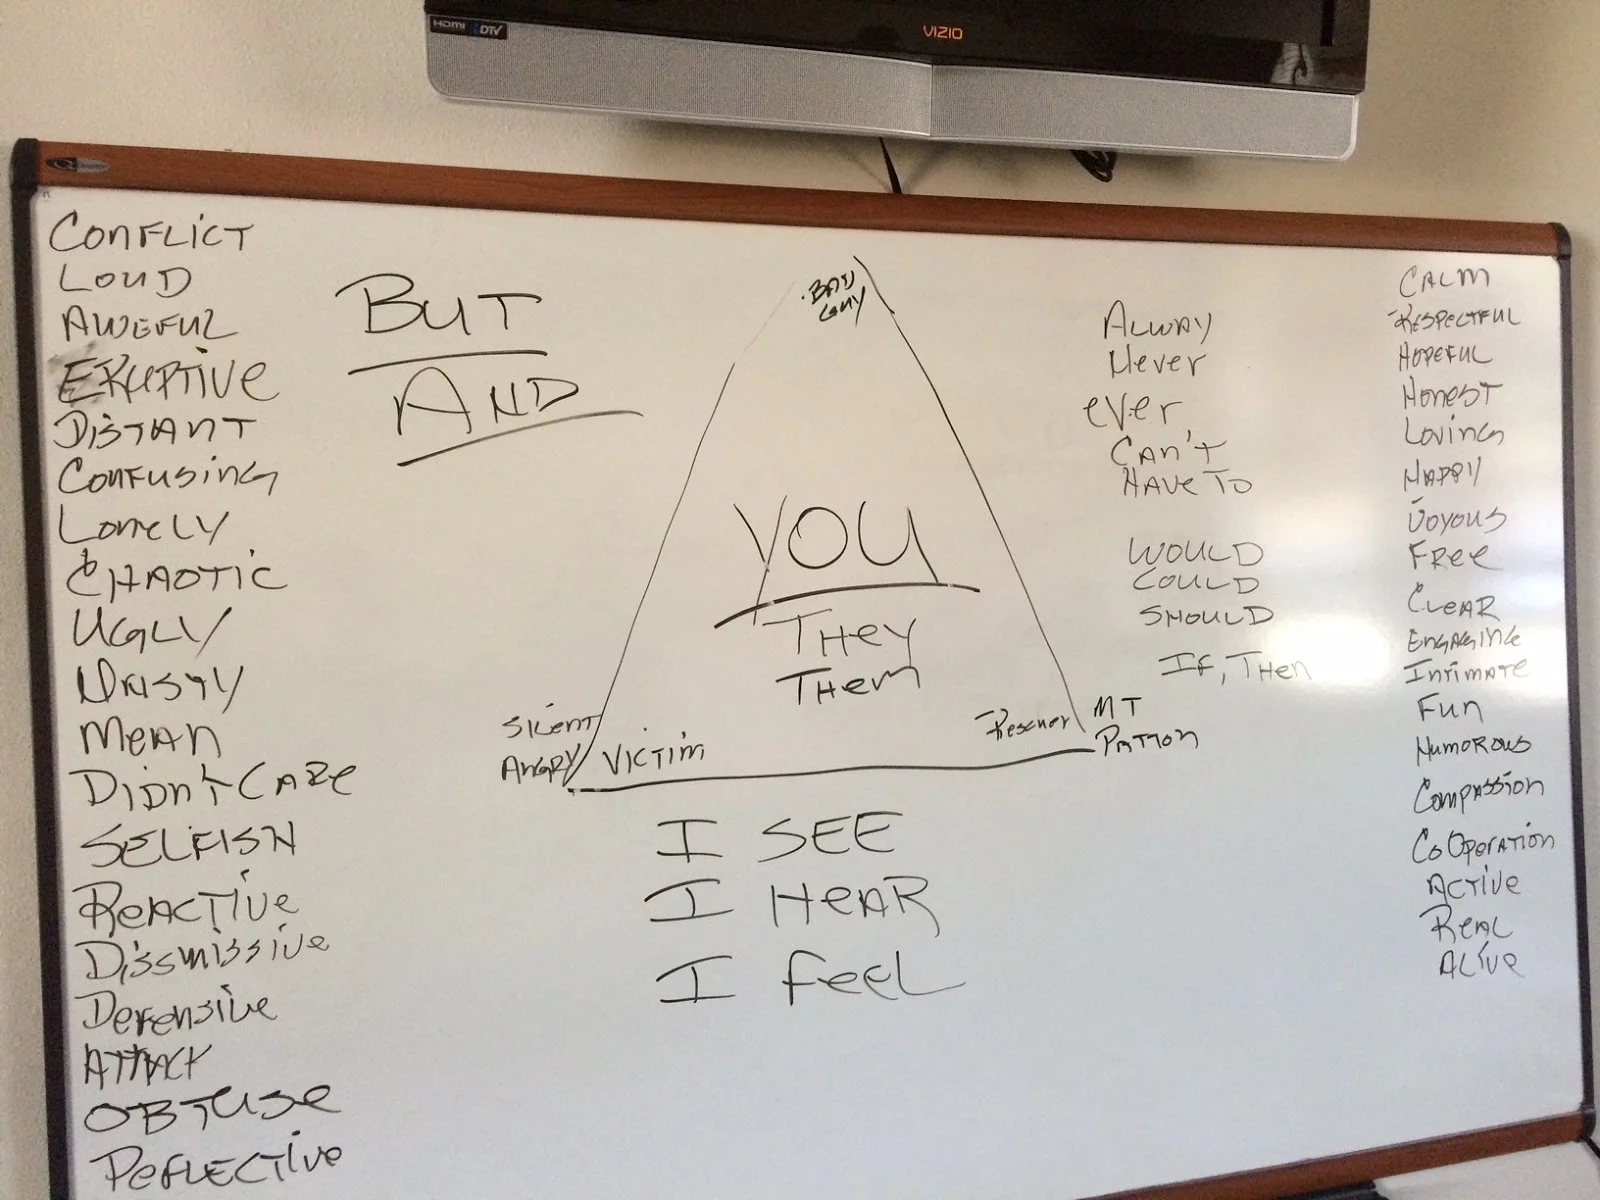 HDMI HDTV
VIZIO
CONFLICT
LOUD
AWEFUL
ERUPTIVE
DISTANT
CONFUSING
LONELY
CHAOTIC
UGLY
NASTY
MEAN
DIDN'T CARE
SELFISH
REACTIVE
DISSMISSIVE
DEFENSIVE
ATTACK
OBTUSE
DEFLECTIVE
BUT
AND
BAD
GUY
YOU
THEY
THEM
SILENT
ANGRY
VICTIM
RESCUER
MT
I SEE
I HEAR
I FEEL
ALWAY
NEVER
EVER
CAN'T
HAVE TO
WOULD
COULD
SHOULD
IF, THEN
CALM
RESPECTFUL
HOPEFUL
HONEST
LOVING
HAPPY
JOYOUS
FREE
CLEAR
ENGAGING
INTIMATE
FUN
HUMOROUS
COMPASSION
COOPERATION
ACTIVE
REAL
ALIVE